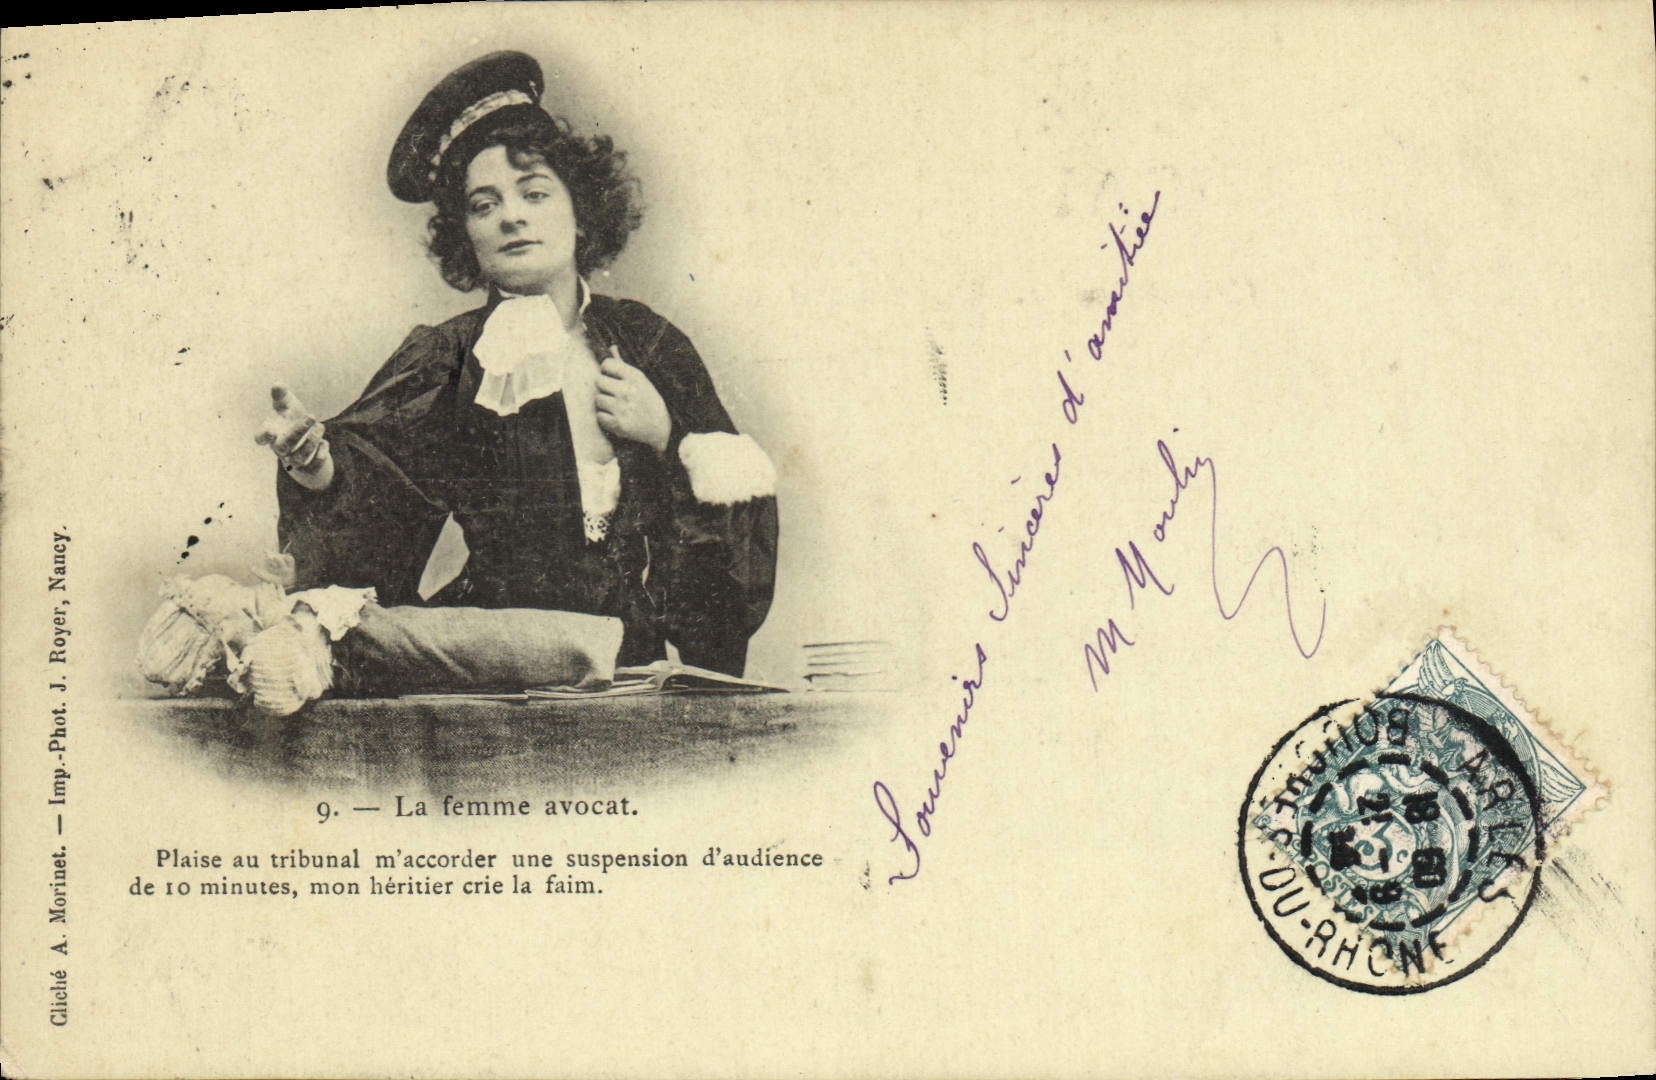 9. — La femme avocat.
Plaise au tribunal m'accorder une suspension d'audience
de 10 minutes, mon héritier crie la faim.
Cliché A. Morinet. — Imp.-Phot. J. Royer, Nancy.
Souvenirs Sincères d'amitiée
M
ARLES
BOUCHES-DU-RHONE
POSTES